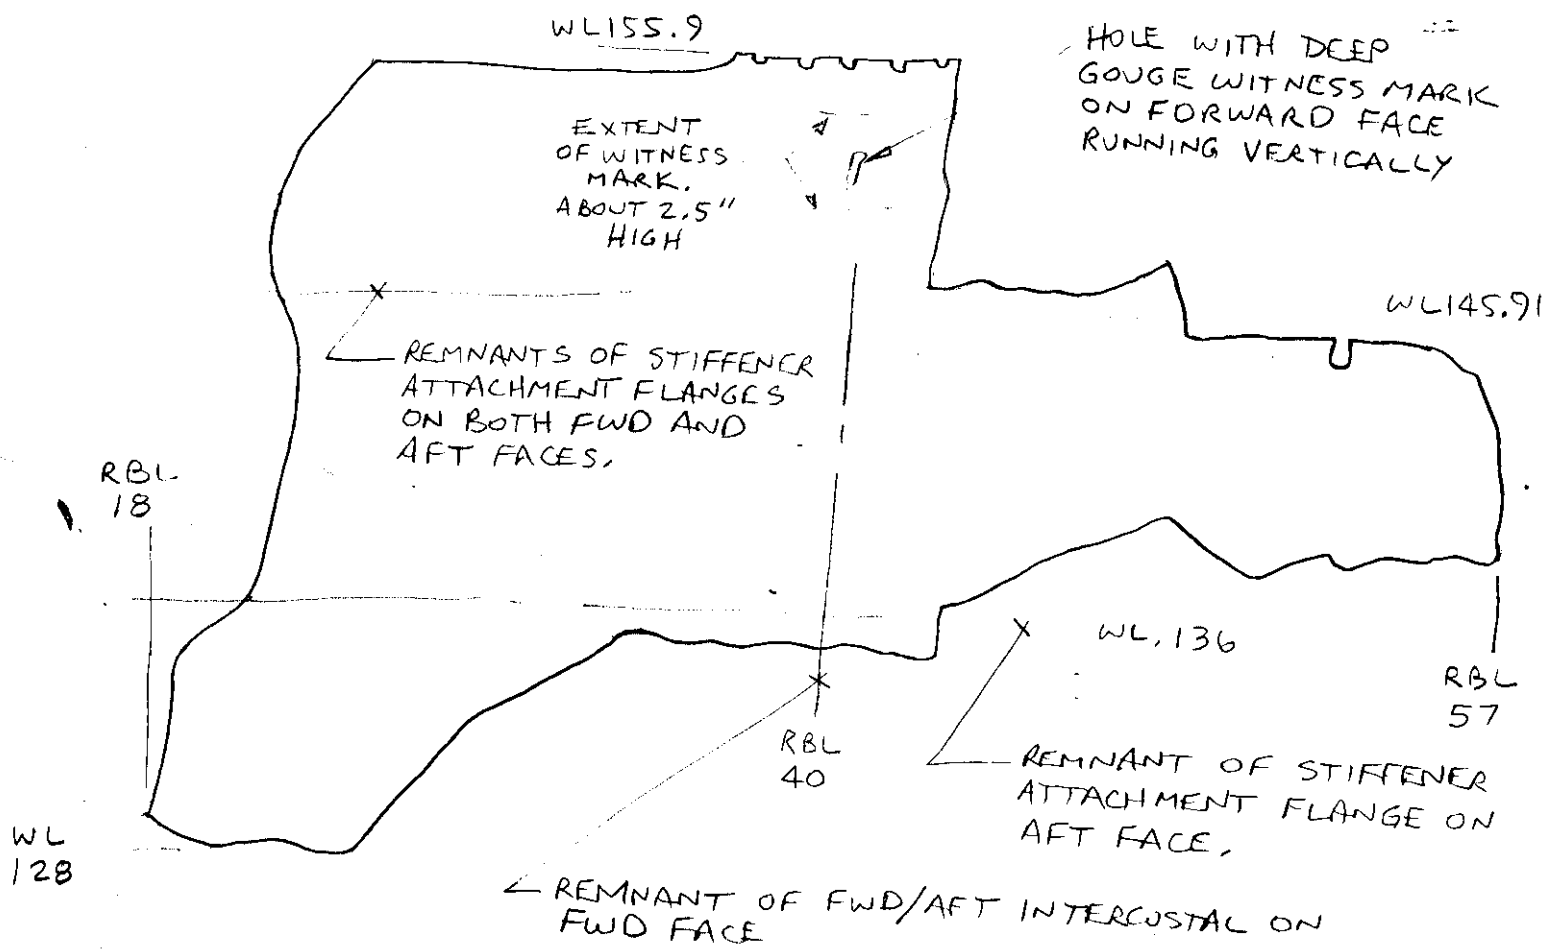 WL155.9
HOLE WITH DEEP
GOUGE WITNESS MARK
ON FORWARD FACE
RUNNING VERTICALLY
EXTENT
OF WITNESS
MARK.
ABOUT 2.5"
HIGH
WL145.91
REMNANTS OF STIFFENER
ATTACHMENT FLANGES
ON BOTH FWD AND
AFT FACES.
RBL
18
WL.136
RBL
57
RBL
40
REMNANT OF STIFFENER
ATTACHMENT FLANGE ON
AFT FACE.
WL
128
REMNANT OF FWD/AFT INTERCUSTAL ON
FWD FACE